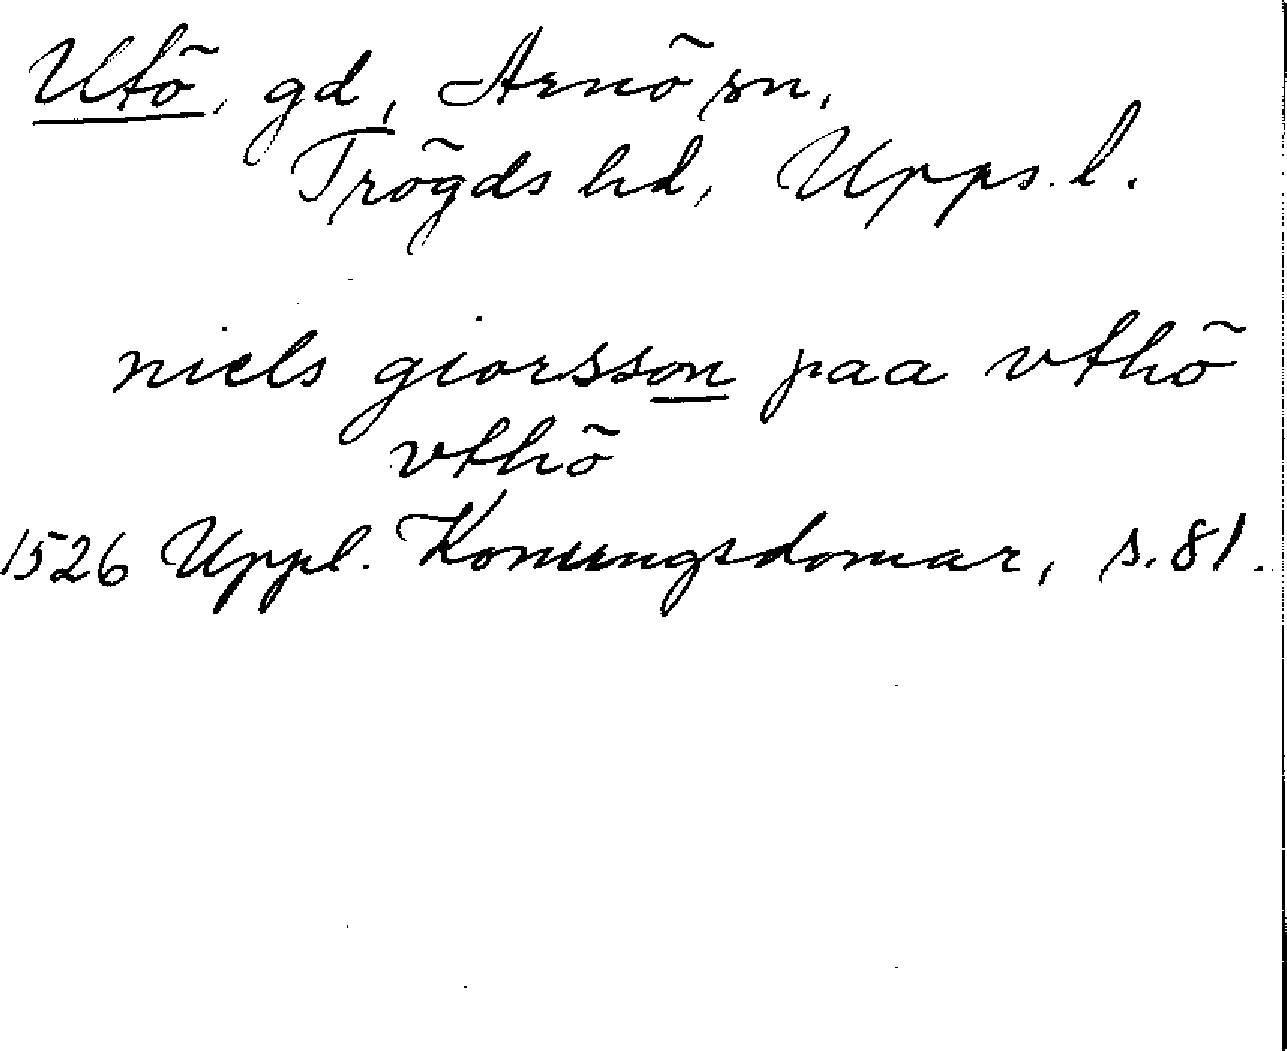 Utö, gd, Arnö sn,
Trögds hd, Upps. l.
niels giorsson paa vthö
vthö
1526 Uppl. Konungsdomar, s. 81.